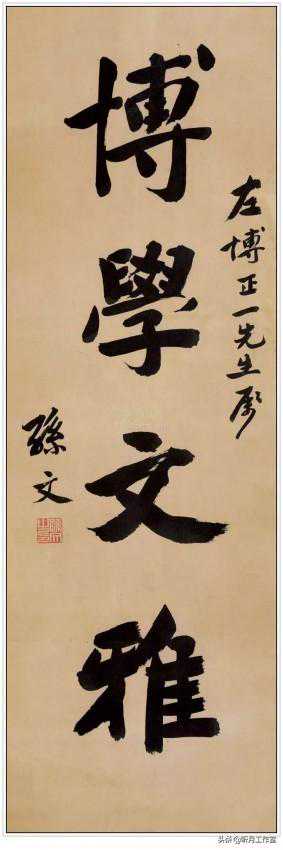 左博正一先生属
博學文雅
孫文
头条@昕月工作室